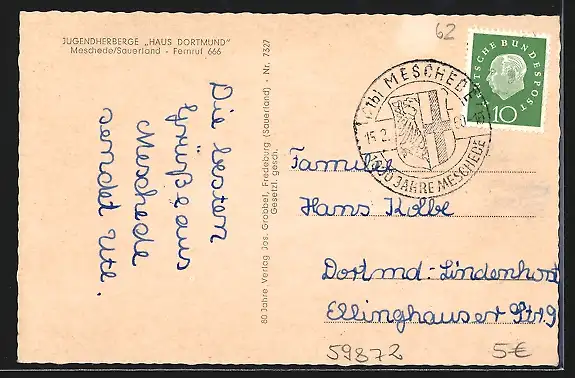 JUGENDHERBERGE „HAUS DORTMUND"
Meschede/Sauerland - Fernruf 666
Die besten
Grüße aus
Meschede
sendet Ute.
80 Jahre, Verlag Jos. Grobbel, Fredeburg (Sauerland) - Nr. 7327
Gesetzl. gesch.
62
DEUTSCHE BUNDESPOST
10
MESCHEDE
15.2.
1000 JAHRE MESCHEDE
Familie
Hans Kolbe
Dortmd-Lindenhorst
Ellinghauser Str 9
59872
5€